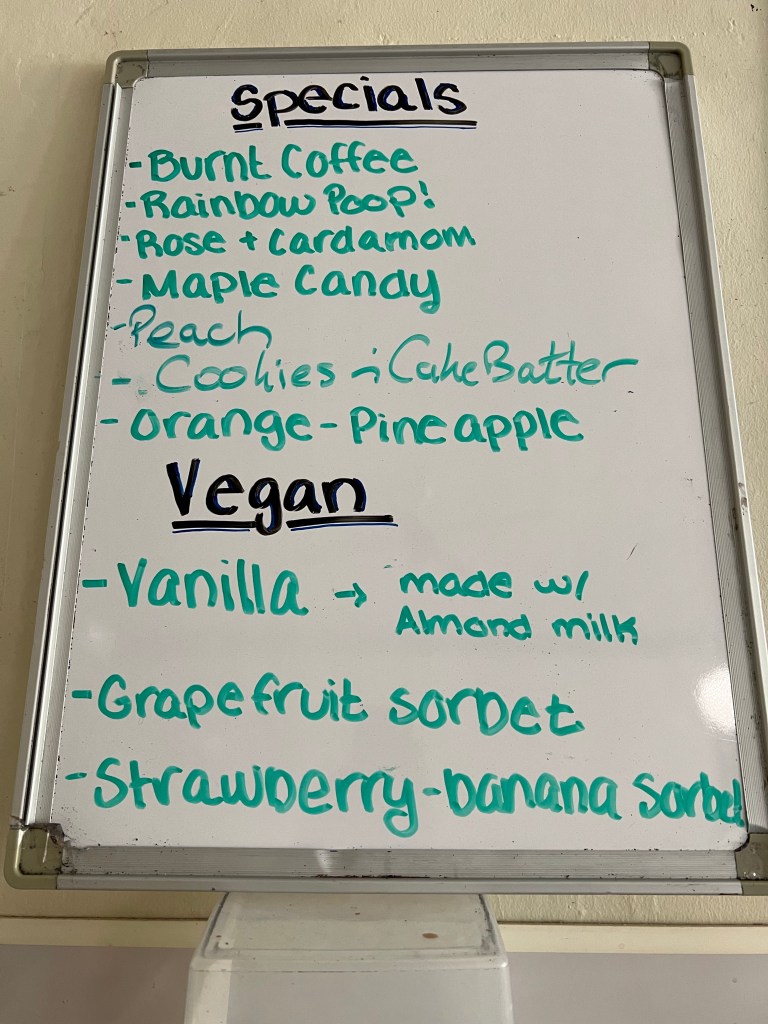 Specials
- Burnt Coffee
- Rainbow Poop!
- Rose + Cardamom
- Maple Candy
- Peach
- Cookies n Cake Batter
- Orange - Pineapple
Vegan
- Vanilla → made w/
Almond milk
- Grapefruit sorbet
- Strawberry - banana sorbet